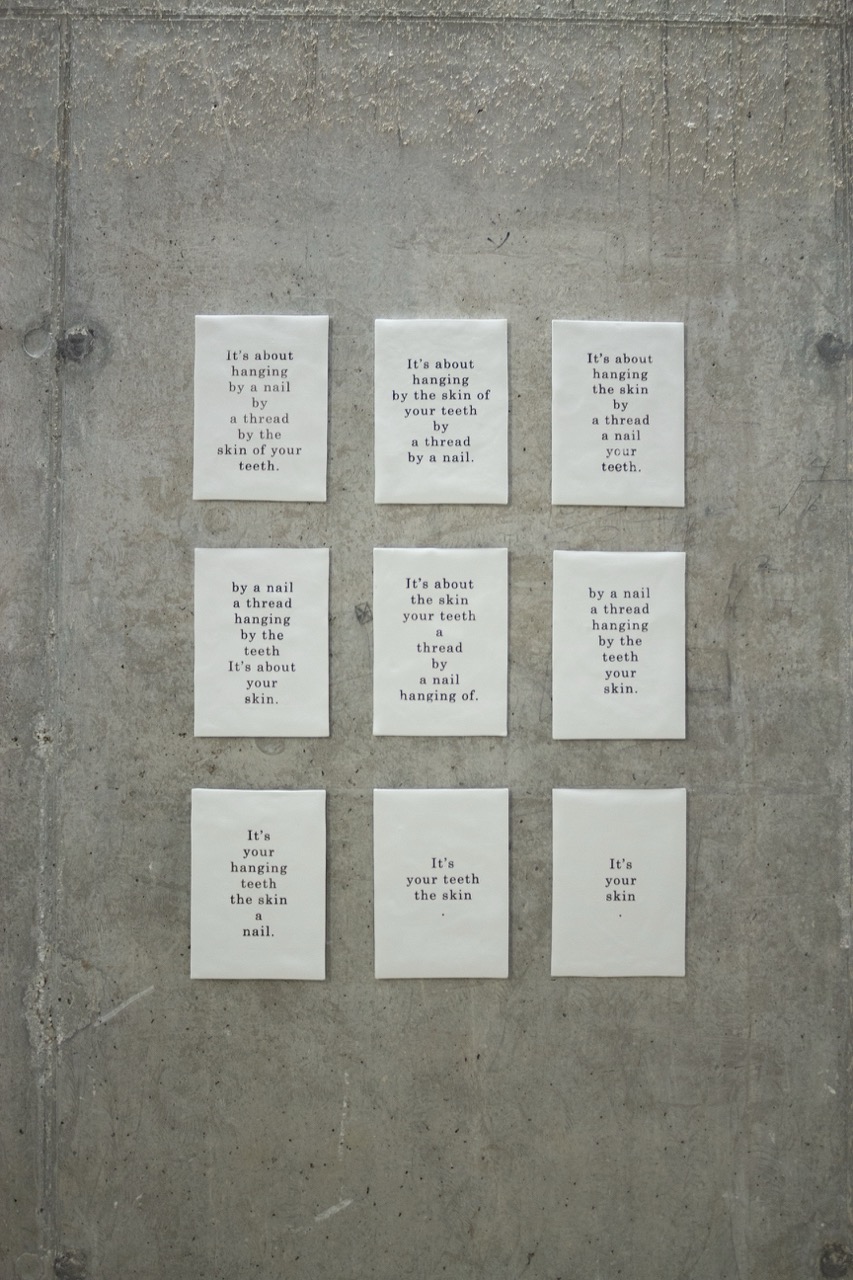 It's about
hanging
by a nail
by
a thread
by the
skin of your
teeth.
It's about
hanging
by the skin of
your teeth
by
a thread
by a nail.
It's about
hanging
the skin
by
a thread
a nail
your
teeth.
by a nail
a thread
hanging
by the
teeth
It's about
your
skin.
It's about
the skin
your teeth
a
thread
by
a nail
hanging of.
by a nail
a thread
hanging
by the
teeth
your
skin.
It's
your
hanging
teeth
the skin
a
nail.
It's
your teeth
the skin
.
It's
your
skin
.